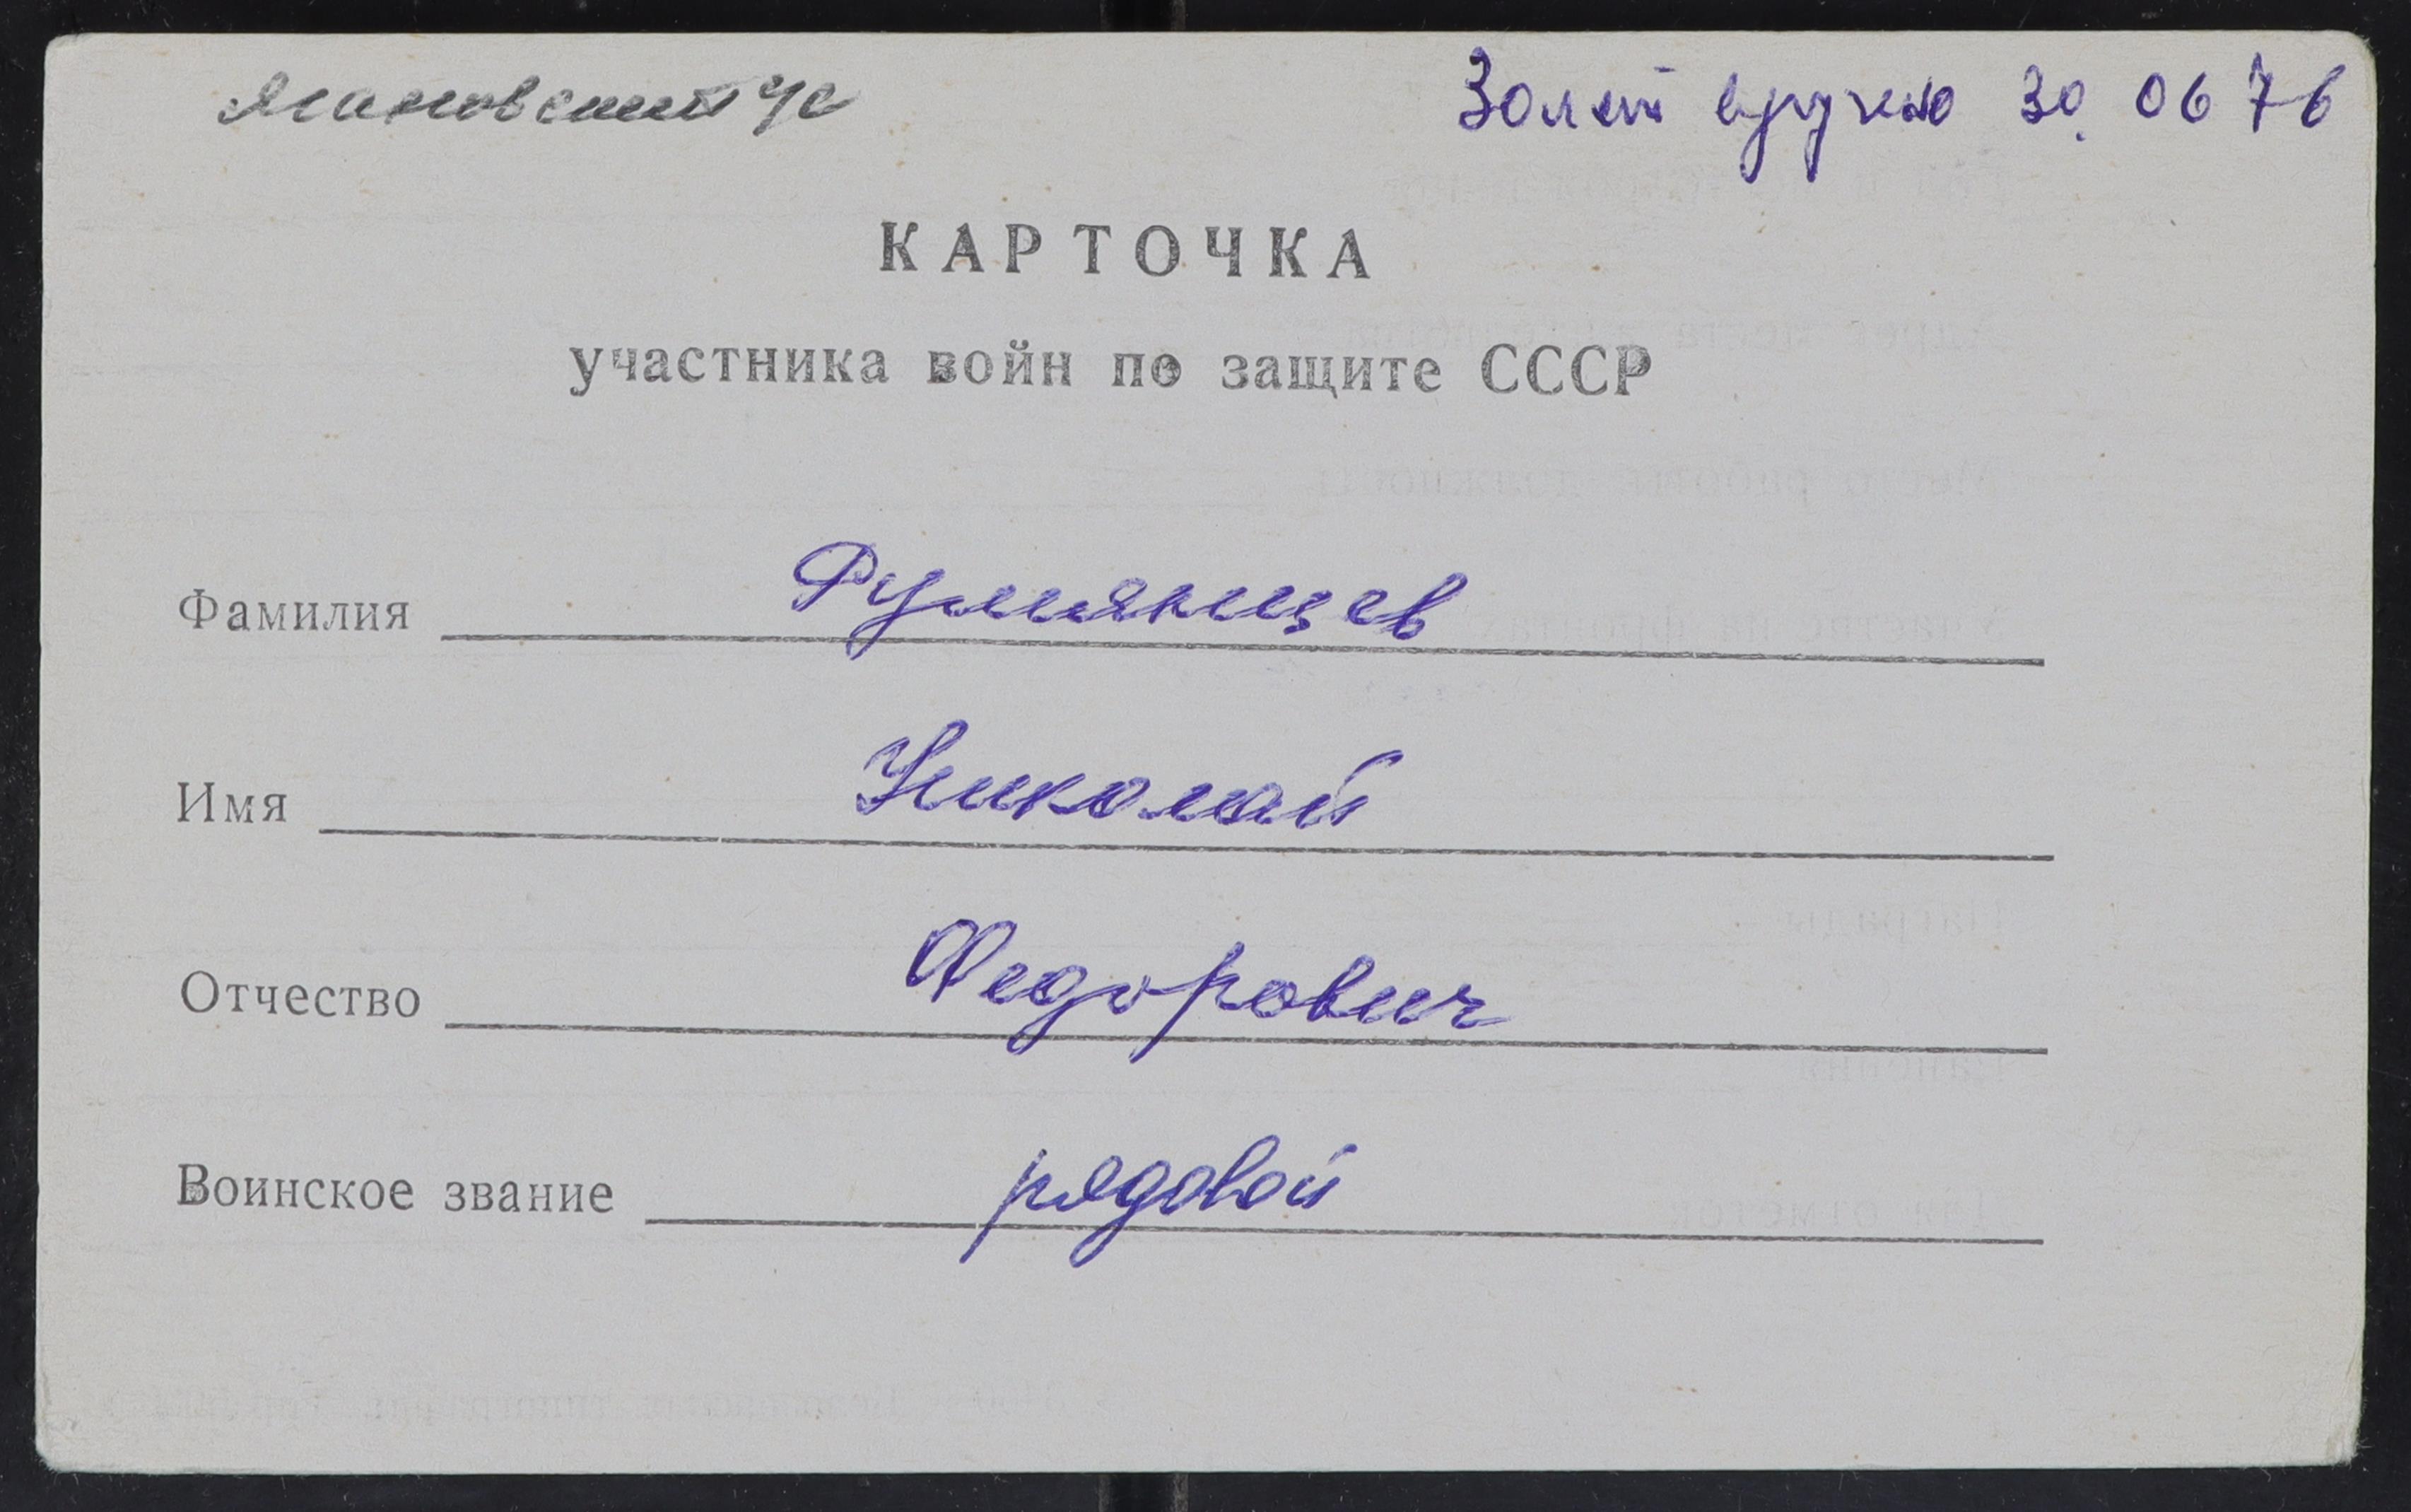 Мановский ус
Золот вручено 30. 06 76
КАРТОЧКА
участника войн по защите СССР
Фамилия Румянцев
Имя Николай
Отчество Федорович
Воинское звание рядовой